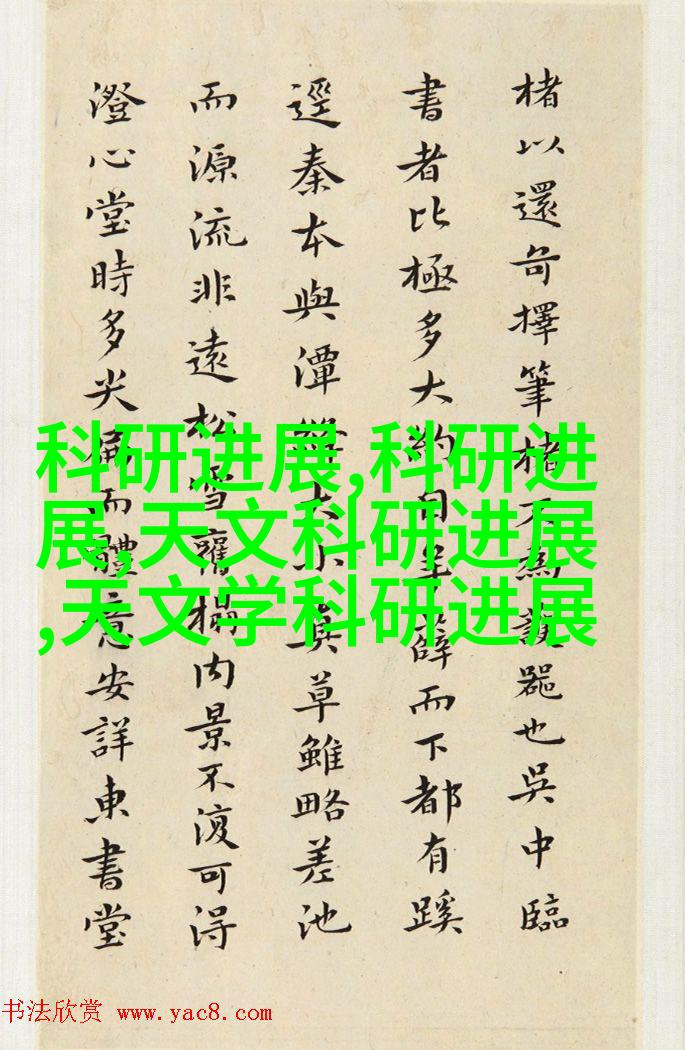 楮以還奇擇筆楮不為器也吳中臨
書者比極多大約自羊薛而下都有蹊
逕秦本與潭絳大小真草雖略差池
而源流非遠松雪舊榻内景不復可得
澄心堂時多尖而體意安詳東書堂
科研进展,科研进
展,天文科研进展
,天文学科研进展
书法欣赏 www.yac8.com